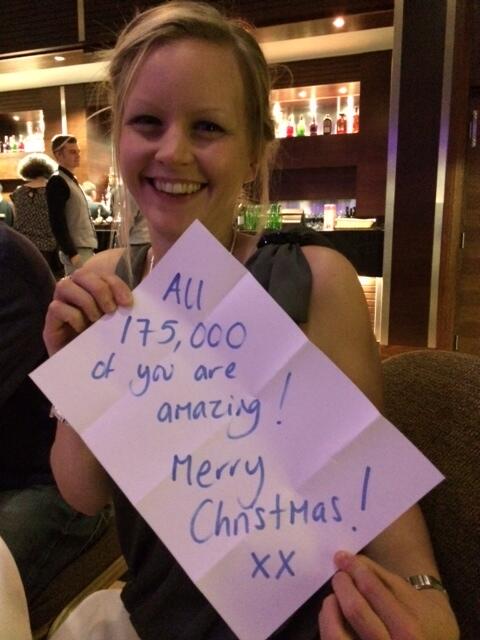 All
175,000
of you are
amazing!
Merry
Christmas!
xx